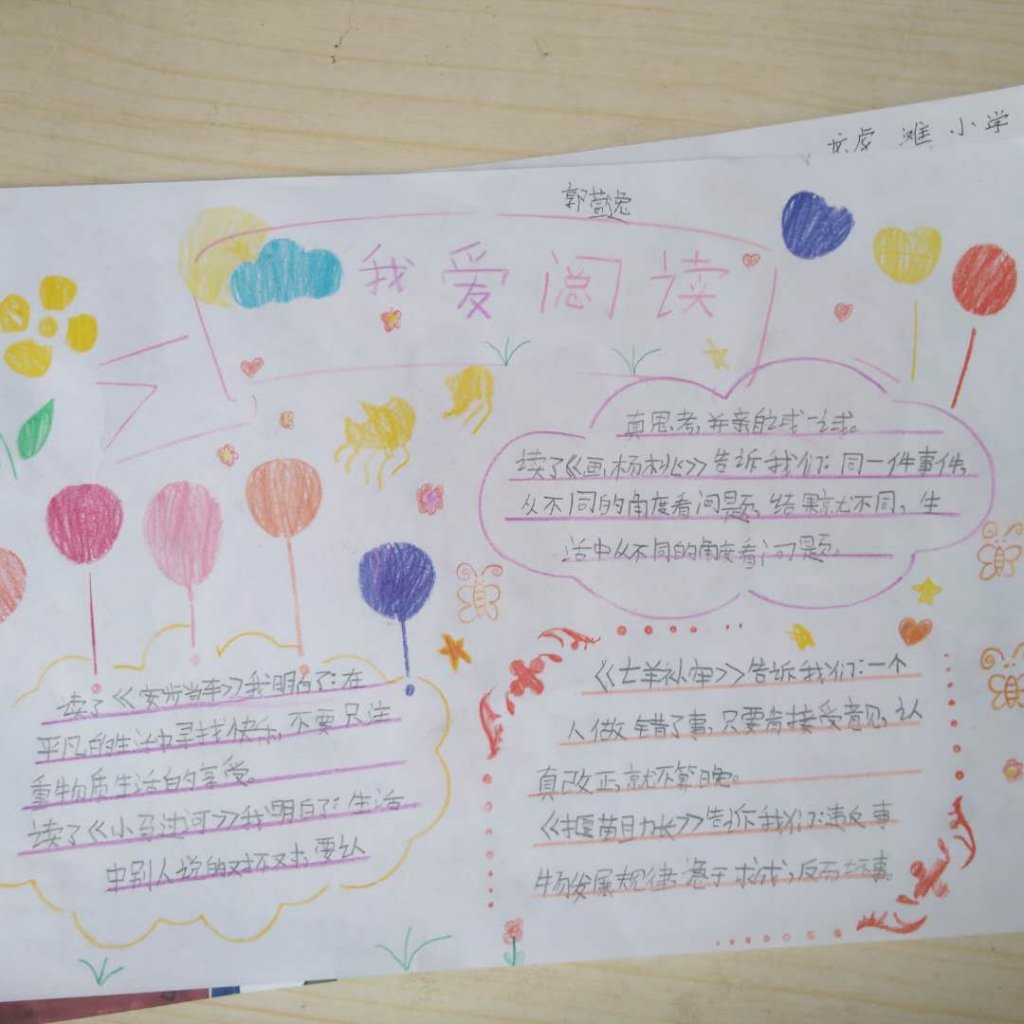 滩 小学
郭
我爱阅读
真思考,并亲自试一试。
读了《画杨桃》告诉我们:同一件事件,
从不同的角度看问题,结果就不同,生
活中从不同的角度看问题。
读了《安步当车》我明白了:在
平凡的生活中寻找快乐,不要只注
重物质生活的享受。
读了《小马过河》我明白了:生活
中别人说的对不对,要认
《亡羊补牢》告诉我们:一个
人做错了事,只要肯接受意见,认
真改正,就不算晚。
《揠苗助长》告诉我们:违反事
物发展规律,急于求成,反而坏事。